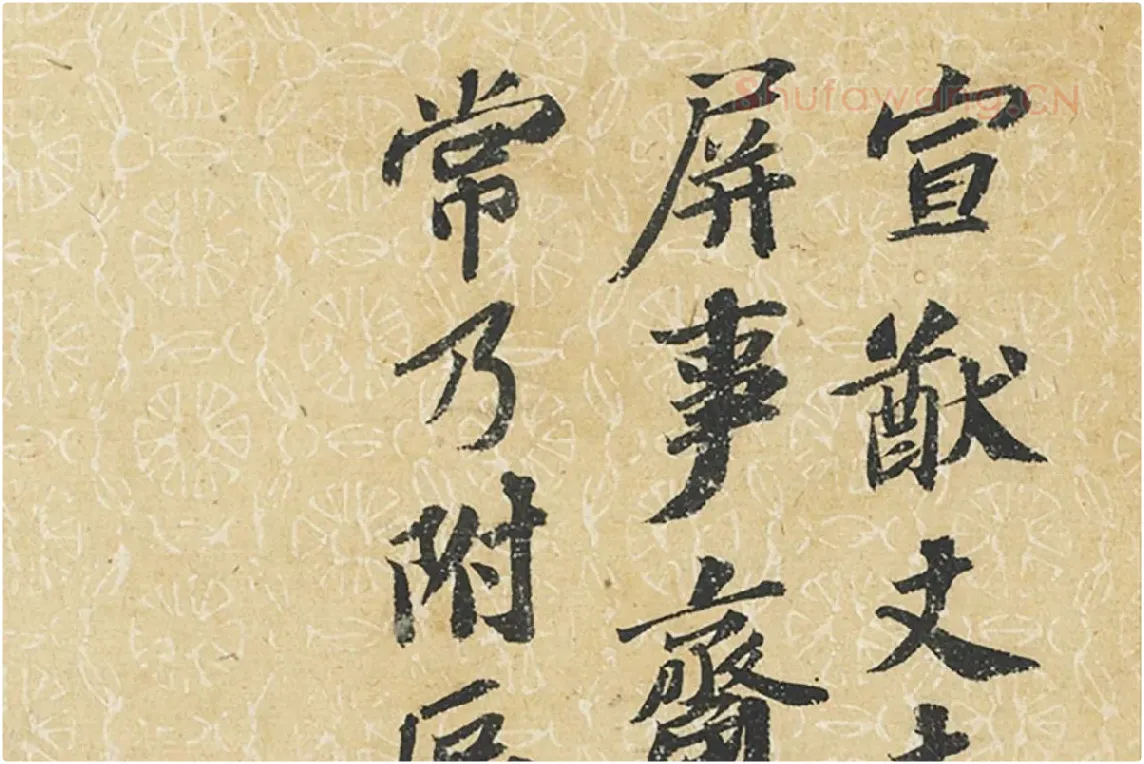 宣猷丈
屏事齋
常乃附
Shufawang.CN